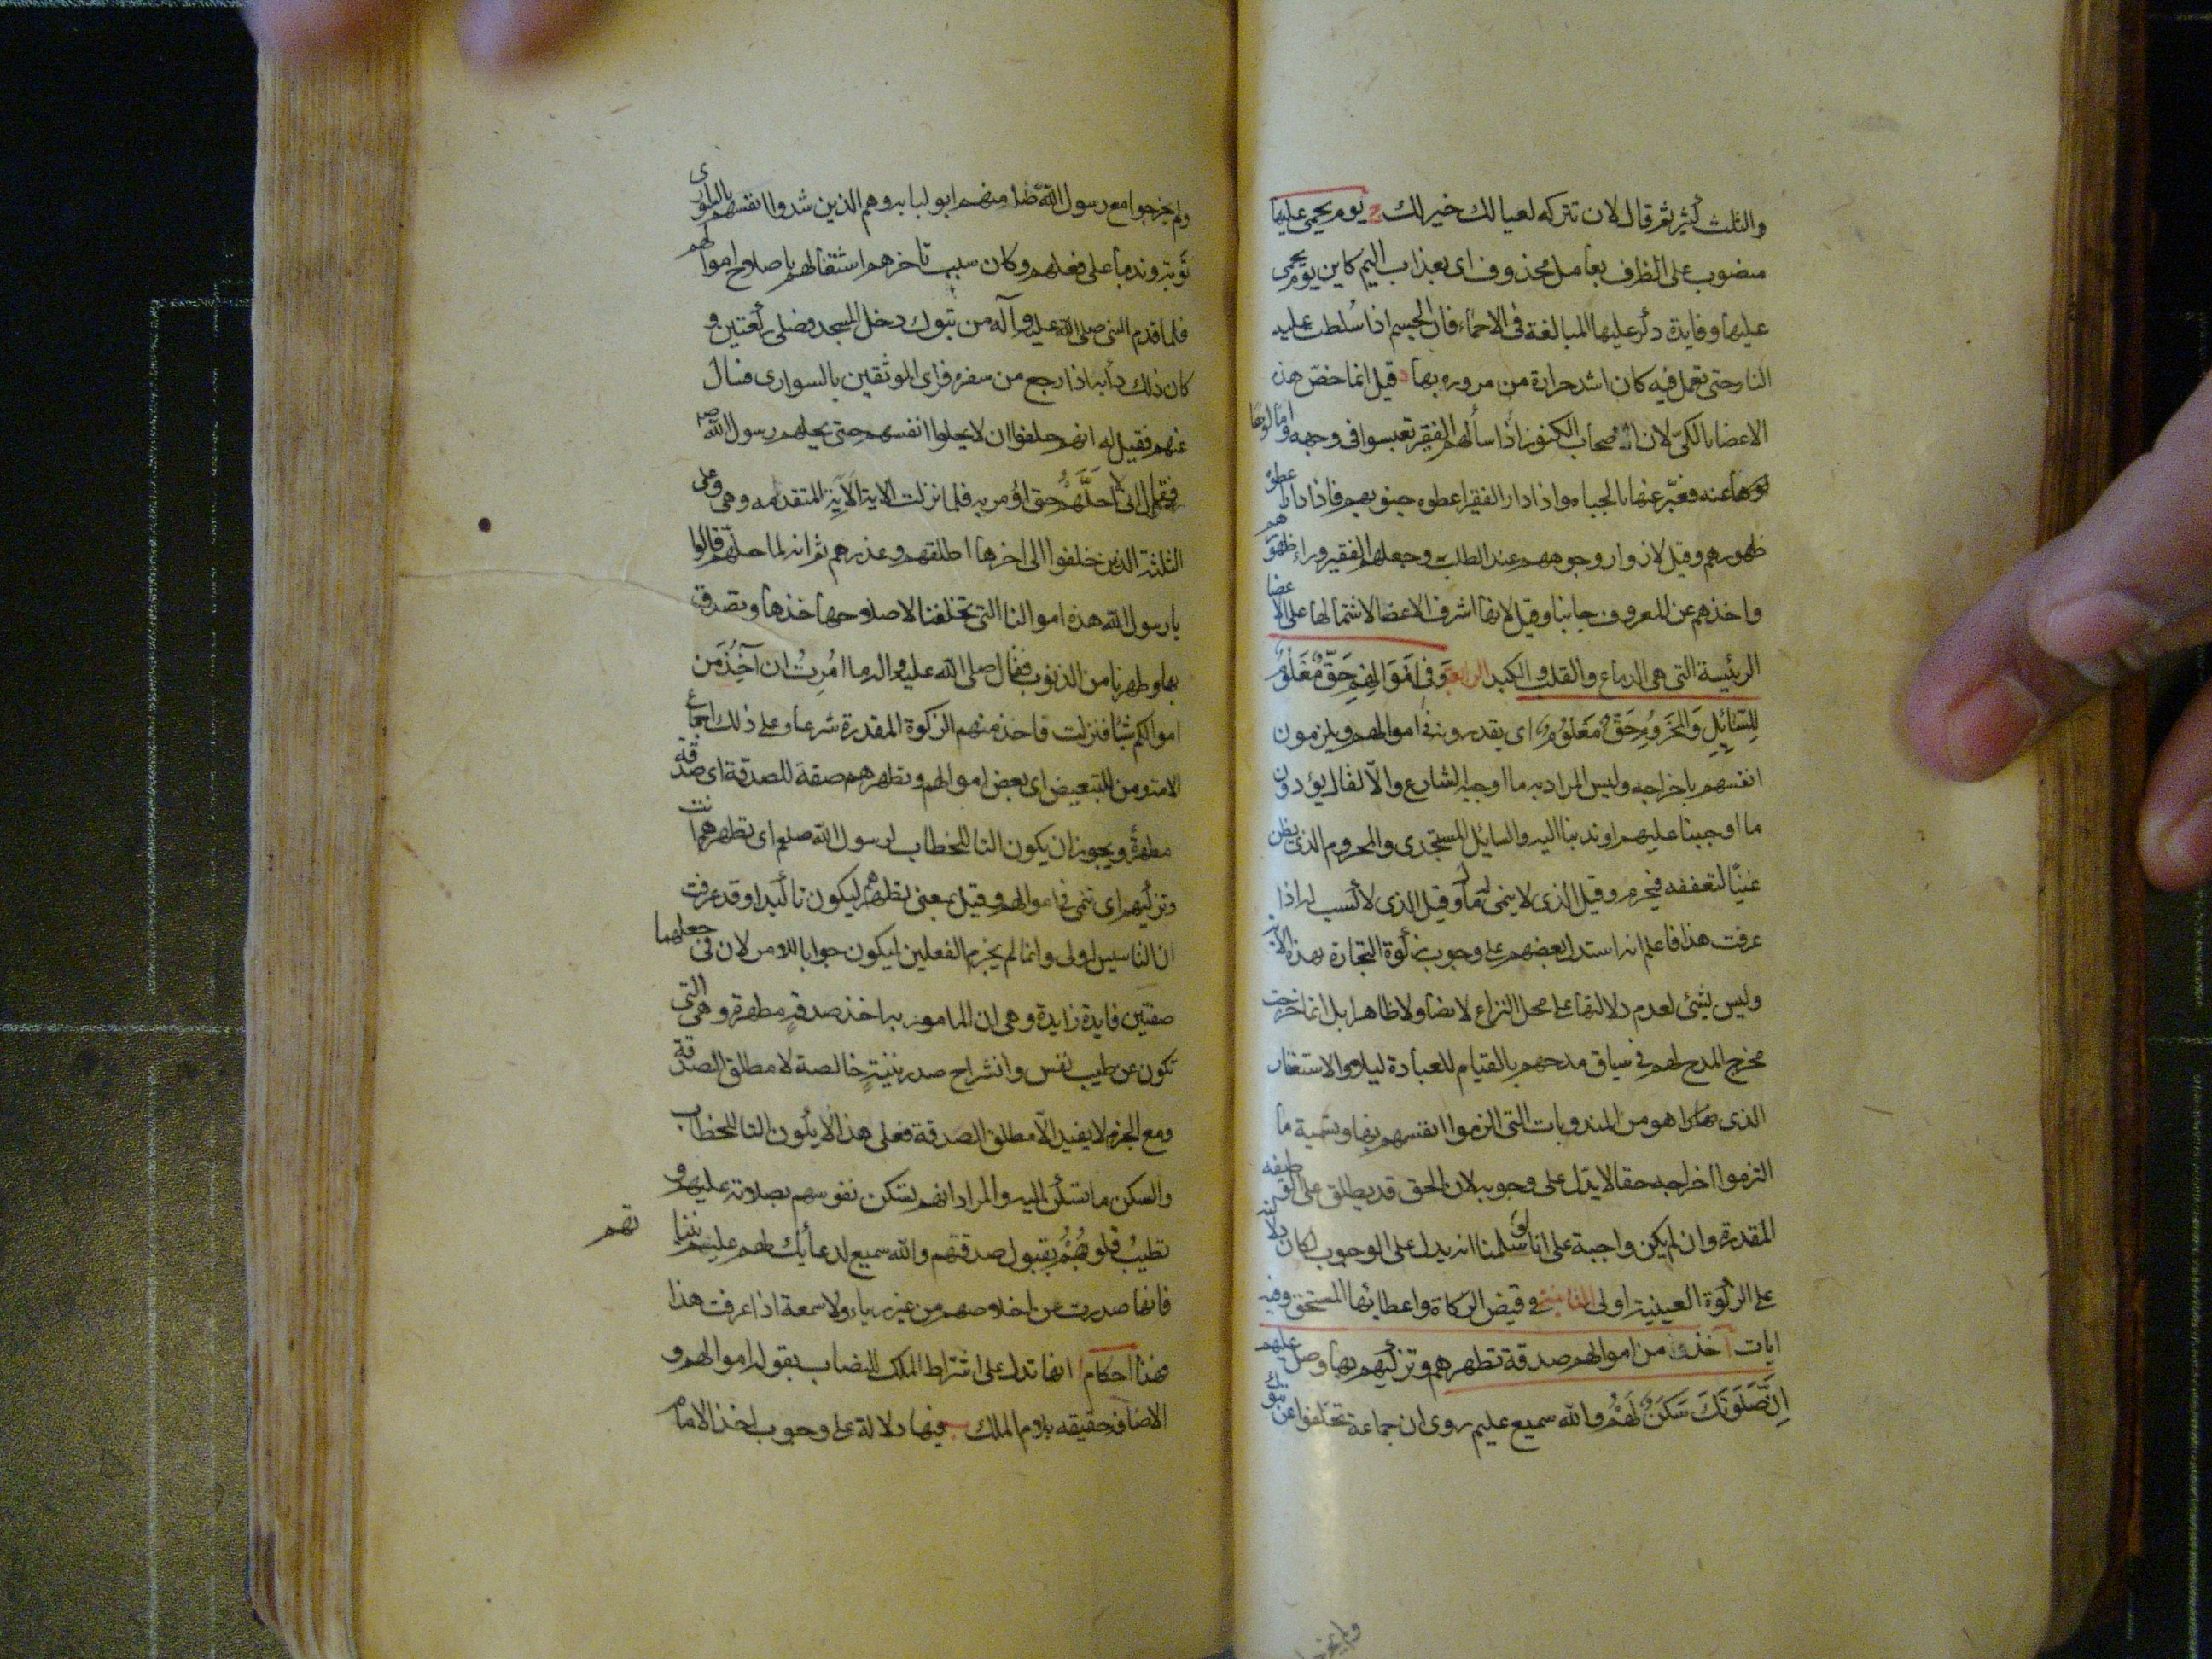 والثلث كثير ثم قال لان تتركه لعيالك خير لك ج يوم يحمى عليها
منصوب على الظرف بعامل محذوف اى بعذاب اليم كاين يوم يحمى
عليها وفايدة ذكر عليها المبالغة فى الاحماء فان الجسم اذا سُلطت عليه
النار حتى تعمل فيه كان اشد حرارة من مروره بها د قيل انما خص هذه
الاعضا بالكىّ لان اصحاب الكنوز اذا سألهم الفقير تعبسوا فى وجهه وامالوها
عنه فعبّر عنها بالجباه واذا دار الفقير اعطوه جنوبهم فاذا دار اعطوه
ظهورهم وقيل لازورار وجوههم عند الطلب وجعلهم الفقير وراء ظهورهم
واخذهم عن المعروف جانبا وقيل لانها اشرف الاعضا لاشتمالها على الاعضا
الرئيسة التى هى الدماغ والقلب والكبد الرابعة وَفِى اَمْوَالِهِم حَقٌّ مَعْلُومٌ
لِلسَّائِلِ وَالمَحْرُومِ حَقٌّ مَعْلُومٌ اى يقدرونه فى اموالهم ويلزمون
انفسهم باخراجه وليس المراد به ما اوجبه الشارع والّا لقال يؤدون
ما اوجبنا عليهم او ندبنا اليه والسايل المستجدى والمحروم الذى يظن
غنيّا لتعففه فيحرم وقيل الذى لا ينمى له مال وقيل الذى لا كسب له اذا
عرفت هذا فاعلم انه استدل بعضهم على وجوب زكوة التجارة بهذه الاية
وليس بشئ لعدم دلالتها على محل النزاع لا نصا ولا ظاهرا بل انما خرجت
مخرج المدح لهم فى سياق مدحهم بالقيام للعبادة ليلا والاستغفار
الذى هما هو من المندوبات التى الزموا انفسهم بها وتسمية ما
التزموا اخراجه حقا لا يدل على وجوبه لان الحق قد يطلق على الوظيفه
المقدرة وان لم يكن واجبة على انا لو سلمنا انه يدل على الوجوب لكان دلالته
على الزكوة العينية اولى الثانى فى قبض الزكاة واعطائها المستحق وفيه
ايات ا خذ من اموالهم صدقة تطهرهم وتزكيهم بها وصل عليهم
اِنَّ صَلَوتَكَ سَكَنٌ لَهُمْ والله سميع عليم روى ان جماعة تخلفوا عن تبوك
ولم يخرجوا
ولم يخرجوا مع رسول الله ص منهم ابو لبابه وهم الذين شدوا انفسهم بالسوارى
توبة وندما على فعلهم وكان سبب تاخرهم اشتغالهم باصلاح اموالهم
فلما قدم النبى صلى الله عليه وآله من تبوك دخل المسجد وصلى ركعتين و
كان ذلك دأبه اذا رجع من سفره فراى الموثقين بالسوارى فسال
عنهم فقيل له انهم حلفوا ان لا يحلوا انفسهم حتى يحلهم رسول الله ص
فقال انى لا احَلَّهُمْ حتى اؤمر به فلما نزلت الاية الاَيَةِ المتقدمه وهى وعلى
الثلثة الذين خلفوا الى اخرها اطلقهم وعذرهم ثم انه لما حلّهم قالوا
يا رسول الله هذه اموالنا التى تخلفنا لاصلاحها خذها وتصدق
بها وطهرنا من الذنوب فقال صلى الله عليه واله ما امُرِتُ ان آخُذَ من
اموالكم شيًا فنزلت فاخذ منهم الزكوة المقدرة شرعا وعلى ذلك اجماع
الامة ومن للتبعيض اى بعض اموالهم وتطهرهم صفة للصدقة اى صدقة
مطهرة ويجوز ان يكون التا للخطاب لرسول الله صلعم اى تطهرهم انت
وتزكيهم اى تنمى فى اموالهم وقيل بمعنى تطهرهم ليكون تاكيدا وقد عرفت
ان التاسيس اولى وانما لم يجزم الفعلين ليكون جوابا للامر لان فى جعلهما
صفتين فايدة زايدة وهى ان المامور به اخذ صدقةٍ مطهرة وهى التى
تكون عن طيب نفس وانشراح صدر بنيةٍ خالصة لا مطلق الصدقة
ومع الجزم لا يفيد الّا مطلق الصدقة فعلى هذا لا يكون التا للخطاب
والسكن ما تسكن اليه والمراد انهم تسكن نفوسهم بصلاته عليهم و
تطيبُ قلوبُهُمْ بقبول صدقتهم والله سميع لدعائك لهم عليم بنياتهم
فانها صدرت عن اخلاصهم من غير رياء ولا سمعة اذا عرفت هذا
فهنا احكام ا انها تدل على اشتراط الملك للنصاب بقوله اموالهم و
الاضافة حقيقه بلام الملك ب فيها دلالة على وجوب اخذ الامام